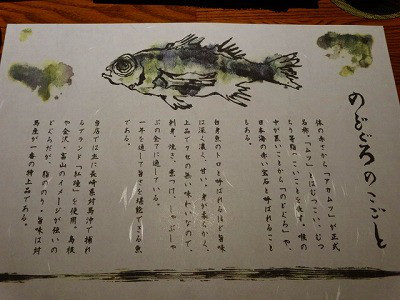 のどぐろのこごと
体の赤さから「アカムツ」が正式
名称。「ムツ」とはむつこい、むつ
ちり等脂っこいことを表す。喉の
中が黒いことから「のどぐろ」や、
日本海の赤い宝石と呼ばれること
もある。
白身魚のトロと呼ばれるほど旨味
は深く濃く、甘い。身も柔らかく、
上品でクセの無い味わいなので、
刺身、焼き、煮つけ、しゃぶしゃ
ぶの全てに適している。
一年を通して旨さを堪能できる魚
である。
当店では主に長崎県対馬沖で捕れ
るブランド「紅瞳」を使用。島根
や金沢・富山のイメージが強いの
どぐろだが、脂のり、旨味は対
馬産が一番の特上品である。